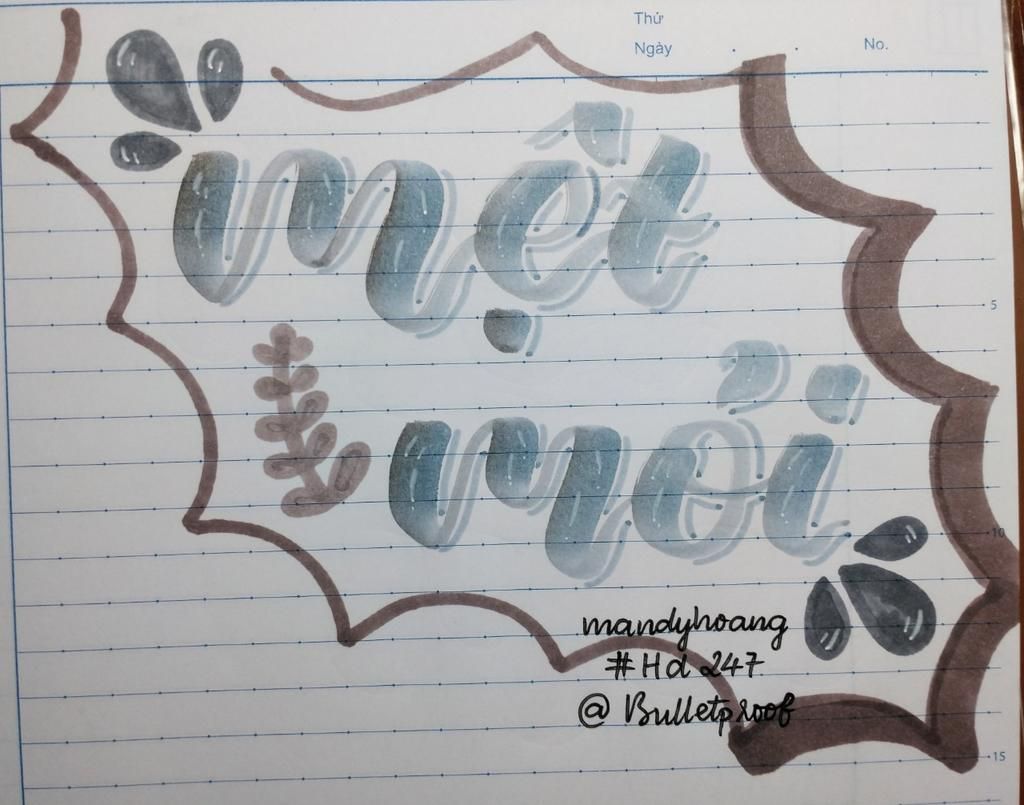 Thứ
Ngày . . No.
mệt
mỏi
5
10
15
mandyhoang
#Hd 247
@ Bulletproof